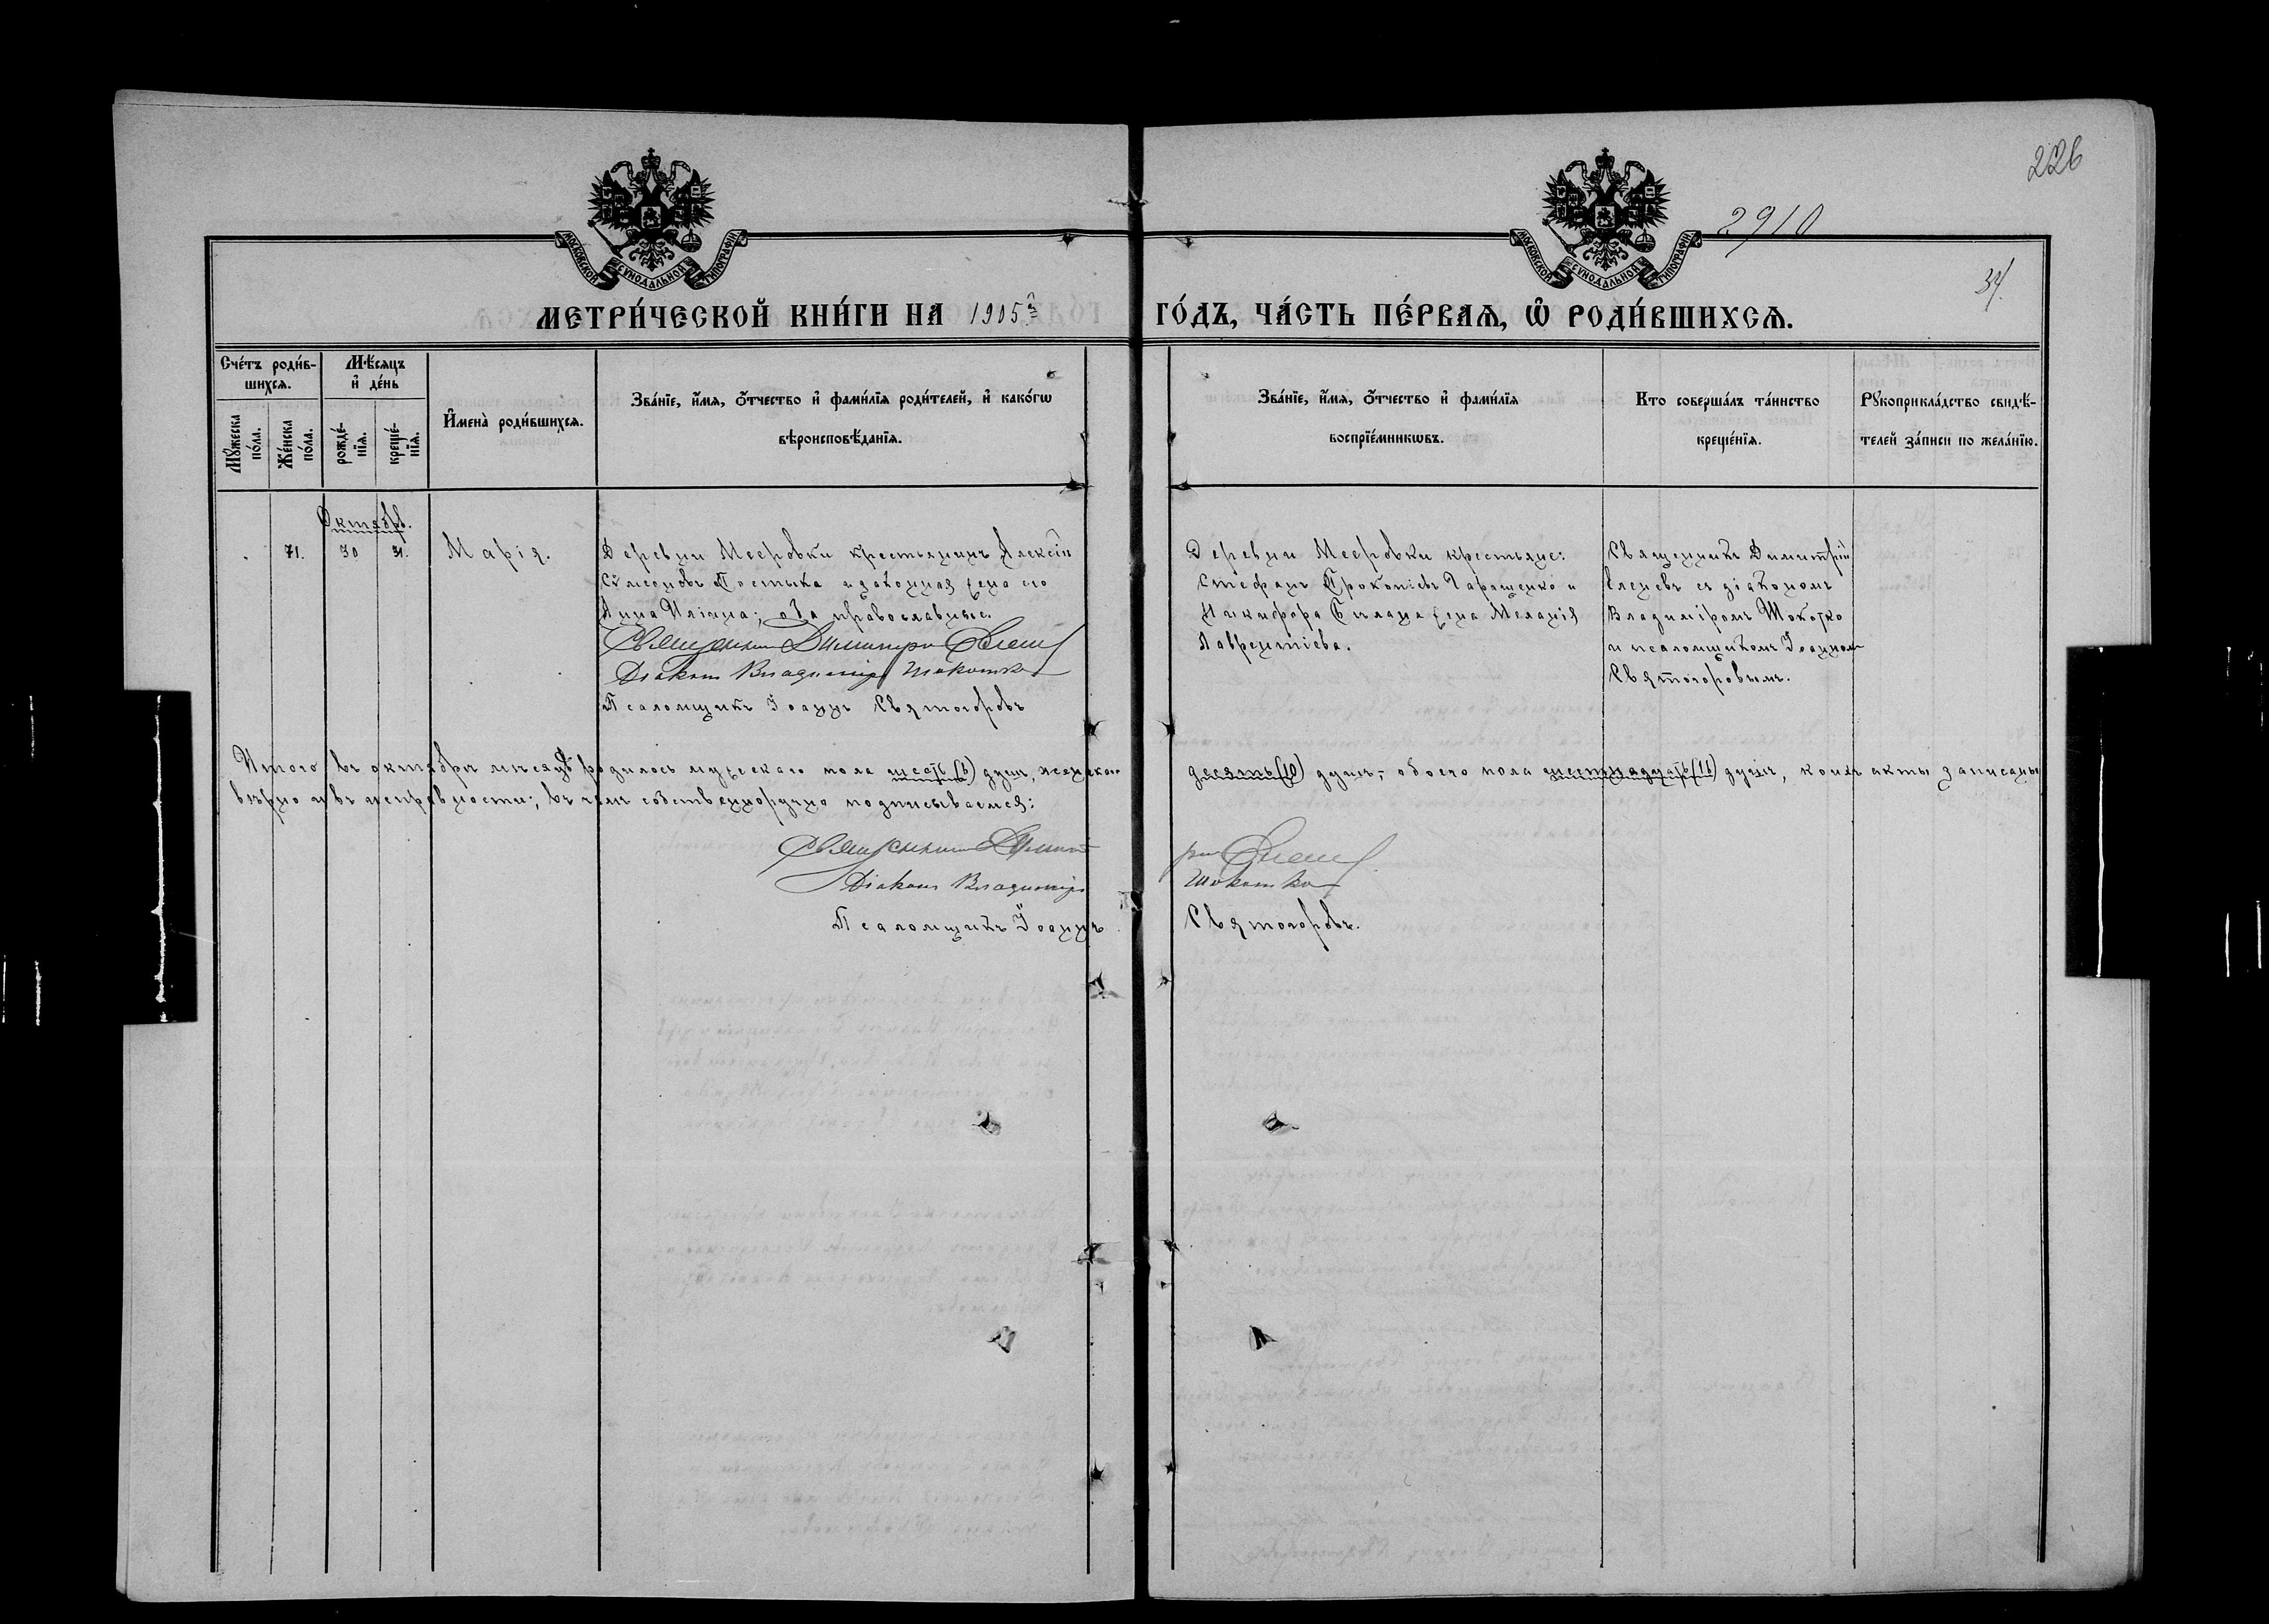 226
2910
34.
МОСКОВСКОЙ СѴНОДАЛЬНОЙ ТИПОГРАФІИ
МОСКОВСКОЙ СѴНОДАЛЬНОЙ ТИПОГРАФІИ
МЕТРИ́ЧЕСКОЙ КНИ́ГИ НА 1905й ГО́ДЪ, ЧА́СТЬ ПЕ́РВАѦ, Ѡ РОДИ́ВШИХСѦ.
Сче́тъ роди́в-
шихсѧ.
Мѣ́сѧцъ
и҆ де́нь
Мꙋ́жеска
по́ла.
Же́нска
по́ла.
рожде́-
нїѧ.
креще́-
нїѧ.
И҆мена̀ роди́вшихсѧ.
Зва́нїе, и҆́мѧ, ѻ҆́тчество и҆ фами́лїѧ роди́телей, и҆ како́гѡ
вѣроисповѣ́данїѧ.
Зва́нїе, и҆́мѧ, ѻ҆́тчество и҆ фами́лїѧ
воспрїе́мникѡвъ.
Кто соверша́лъ та́инство
креще́нїѧ.
Рꙋкоприкла́дство свидѣ́-
телей за́писи по жела́нїю.
Октябрь.
71. 30 31. Марія.
Деревни Мееровки крестьянинъ Алексій
Сѵмеоновъ Постыка и законная жена его
Анна Иліина; оба православные.
Священникъ Димитрій
Діаконъ Владиміръ Шокотко
Псаломщикъ Іоаннъ Святогоровъ
Деревни Мееровки крестьяне:
Стефанъ Прокопіевъ Гаращенко и
Никифора Билана жена Меланія
Лаврентіева.
Священникъ Димитрій
съ діакономъ
Владиміромъ Шокотко
и псаломщикомъ Іоанномъ
Святогоровымъ.
Итого въ октябрѣ мѣсяцѣ родилось мужескаго пола шесть (6) душъ, женскаго десять (10) душъ, обоего пола шестнадцать (16) душъ, коихъ акты записаны
вѣрно и въ исправности; въ чемъ собственноручно подписываемся:
Священникъ Димитрій
Діаконъ Владиміръ Шокотко
Псаломщикъ Іоаннъ Святогоровъ.